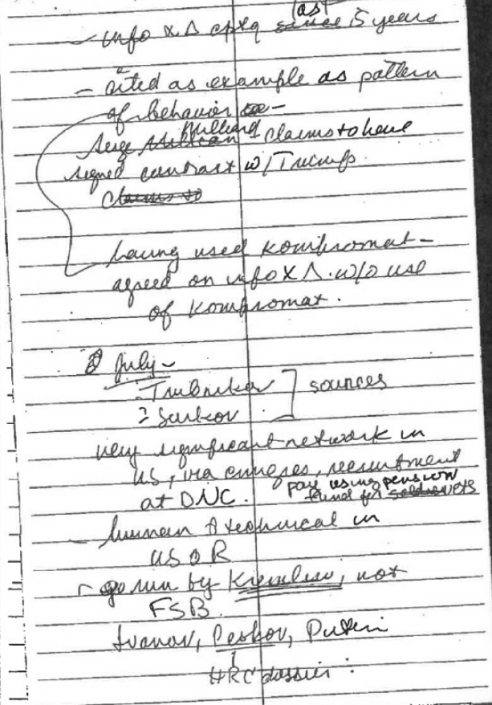 - info x Δ
last
since 5 years
- cited as example as pattern
of behavior -
Millian
Serge Millican claims to have
signed contract w/Trump.
Claims to
having used kompromat -
agreed on info x Δ. w/o use
of kompromat.
July -
Trubnikov ] sources
? Surkov
very significant network in
US, via emigres, recruitment
at DNC. pay using pension
fund for
- human & technical in
US & R
- op run by Kremlin, not
FSB.
Ivanov, Peskov, Putin
HRC dossier: